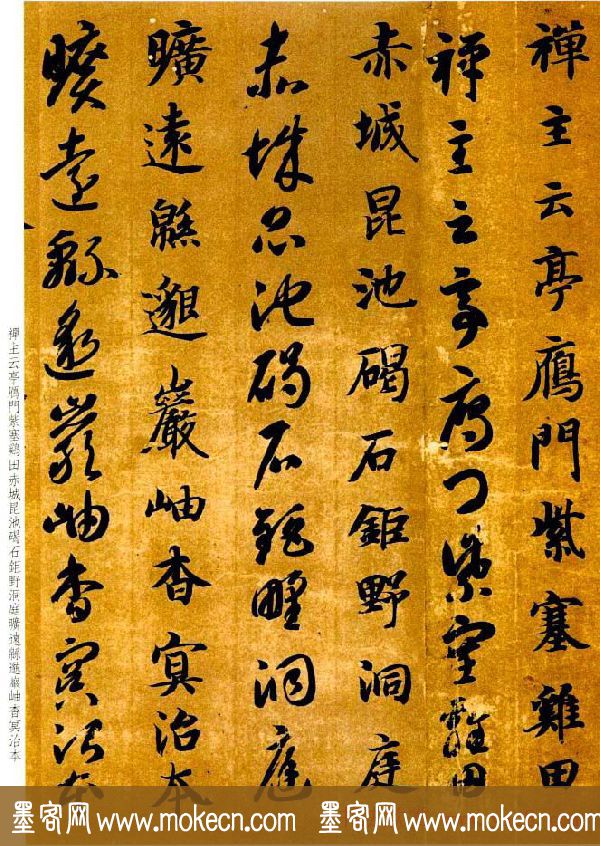 禪主云亭鴈門紫塞雞田
禪主云亭鴈門紫塞雞田
赤城昆池碣石鉅野洞庭
赤城昆池碣石鉅野洞庭
曠遠緜邈巖岫杳冥治本
曠遠緜邈巖岫杳冥治本
禪主云亭鴈門紫塞鷄田赤城昆池碣石鉅野洞庭曠遠緜邈巖岫杳冥治本
墨客网 www.mokecn.com 墨客网 www.mokecn.com